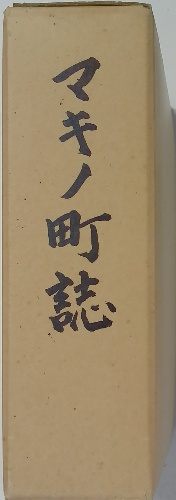 マキノ町誌